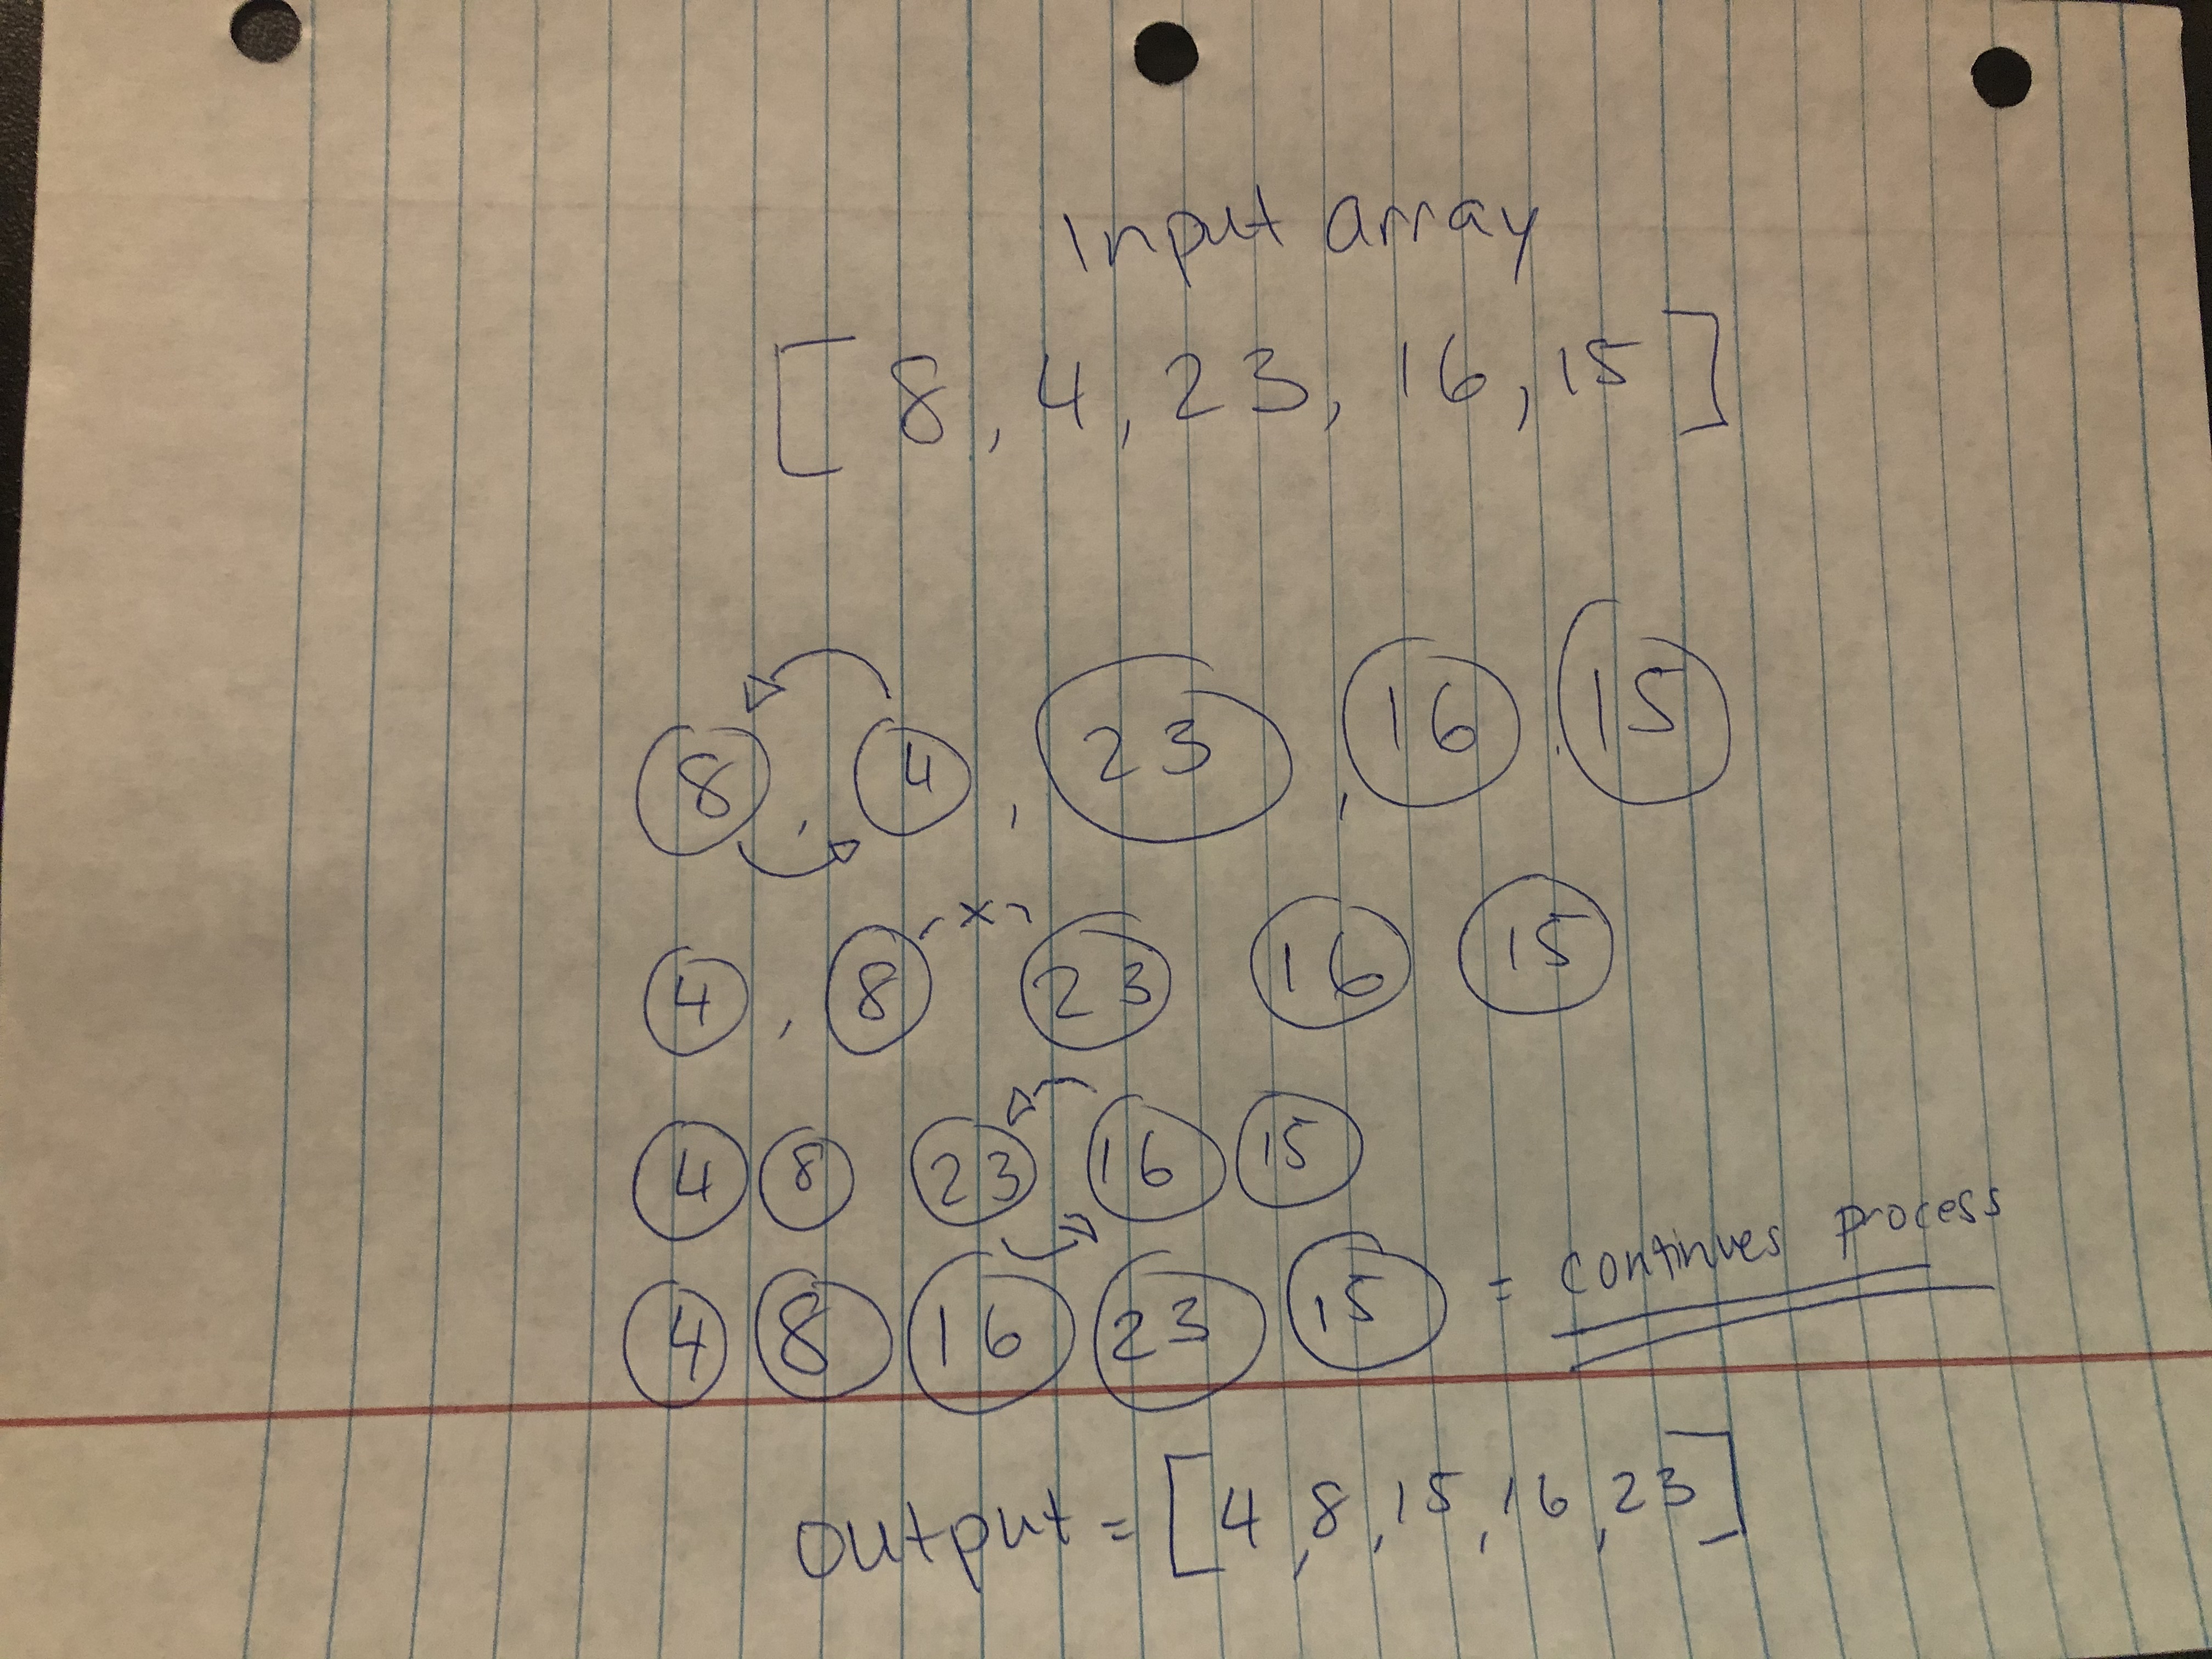 Input array
[8, 4, 23, 16, 15]
8, 4, 23, 16, 15
4, 8 x 23 16 15
4 8 23 16 15
4 8 16 23 15 = continues process
output = [4, 8, 15, 16, 23]